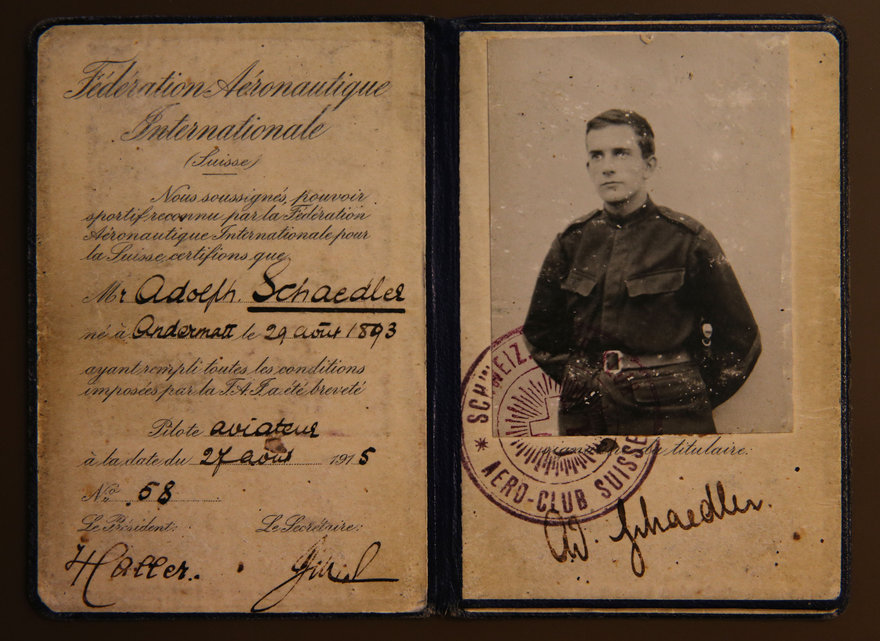 Fédération Aéronautique
Internationale
(Suisse)
Nous soussignés, pouvoir
sportif reconnu par la Fédération
Aéronautique Internationale pour
la Suisse, certifions que
Mr Adolph. Schaedler
né à Andermatt le 29 août 1893
ayant rempli toutes les conditions
imposées par la F.A.I. a été breveté
Pilote aviateur
à la date du 27 août 1915
No. 58
Le Président: Le Secrétaire:
Haller.
SCHWEIZ.
* AERO-CLUB SUISSE
du titulaire:
Ad. Schaedler.